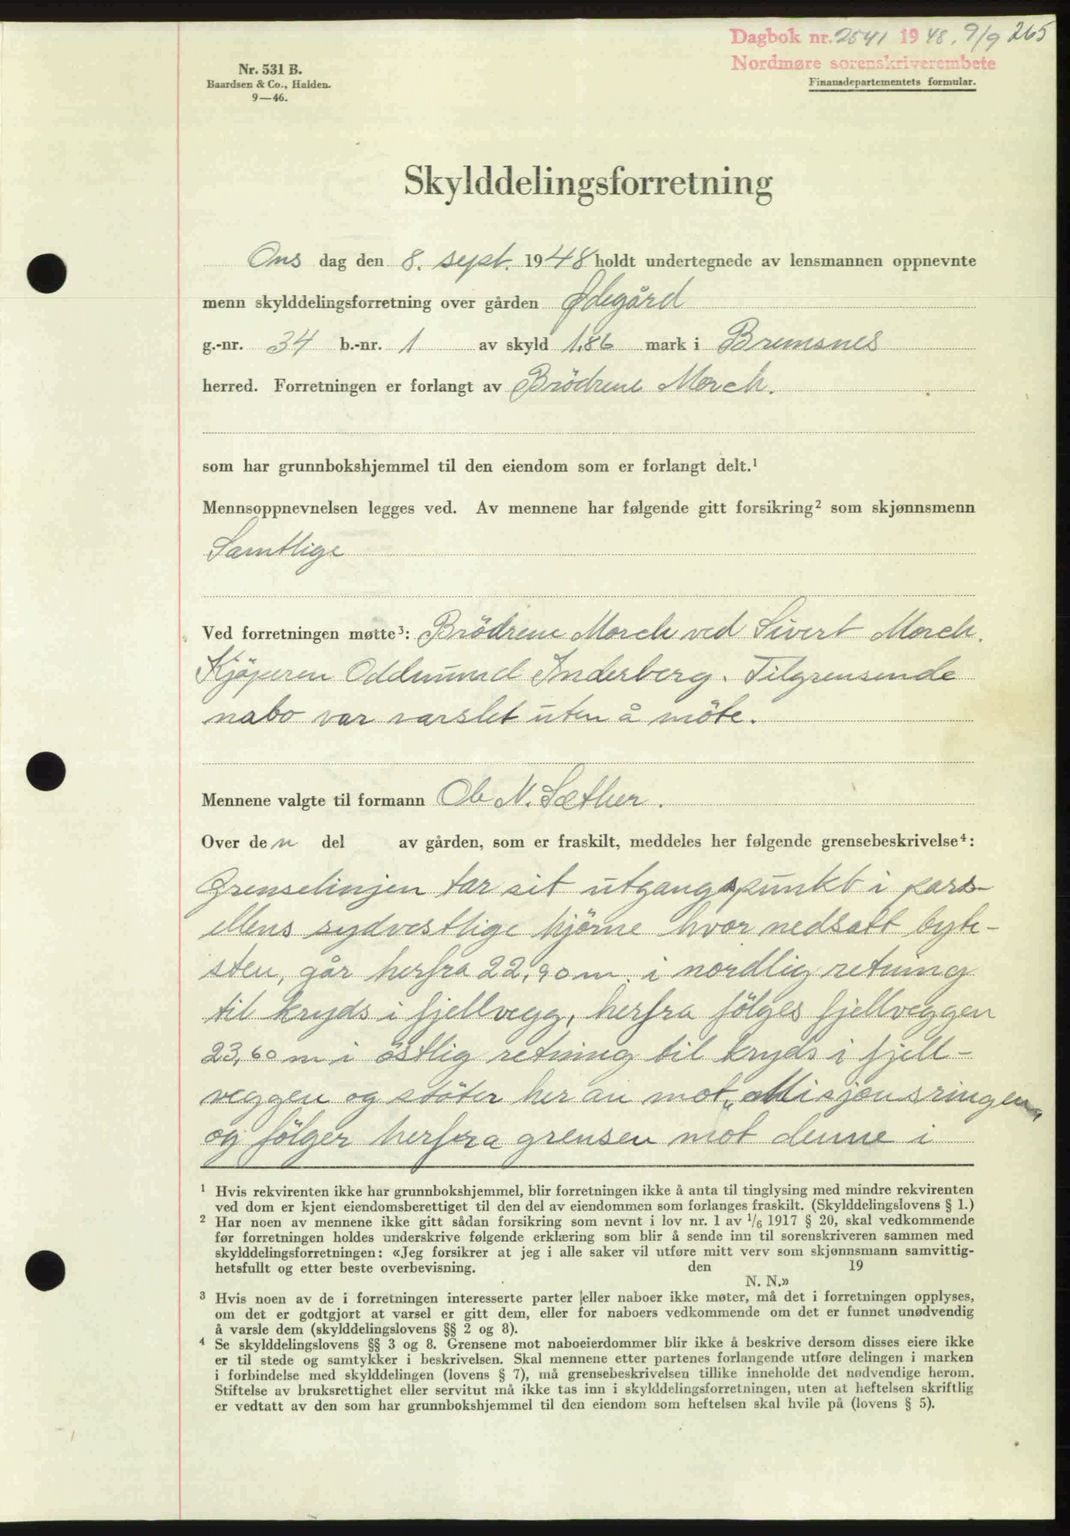 Dagbok nr. 2541 1948. 9/9 265
Nordmøre sorenskriverembete
Finansdepartementets formular.
Nr. 531 B.
Baardsen & Co., Halden.
9—46.
Skylddelingsforretning
Ons dag den 8. sept. 1948 holdt undertegnede av lensmannen oppnevnte
menn skylddelingsforretning over gården Ødegård
g.-nr. 34 b.-nr. 1 av skyld 1.86 mark i Bremsnes
herred. Forretningen er forlangt av Brödrene Morch.
som har grunnbokshjemmel til den eiendom som er forlangt delt.¹
Mennsoppnevnelsen legges ved. Av mennene har følgende gitt forsikring² som skjønnsmenn
Samtlige
Ved forretningen møtte³: Brödrene Morch ved Sivert Morch.
Kjöperen Oddmund Inderberg. Tilgrensende
nabo var varslet uten å möte.
Mennene valgte til formann Ole N. Sæther.
Over den del av gården, som er fraskilt, meddeles her følgende grensebeskrivelse⁴:
Grenselinjen tar sit utgangspunkt i pars-
ellens sydvestlige hjörne hvor nedsatt byte-
sten, går herfra 22,90 m i nordlig retning
til kryds i fjellvegg, herfra fölges fjellveggen
23,60 m i östlig retning til kryds i fjell-
veggen og stöter her an mot „Misjonsringen"
og fölger herfra grensen mot denne i
¹ Hvis rekvirenten ikke har grunnbokshjemmel, blir forretningen ikke å anta til tinglysing med mindre rekvirenten
ved dom er kjent eiendomsberettiget til den del av eiendommen som forlanges fraskilt. (Skylddelingslovens § 1.)
² Har noen av mennene ikke gitt sådan forsikring som nevnt i lov nr. 1 av 1/6 1917 § 20, skal vedkommende
før forretningen holdes underskrive følgende erklæring som blir å sende inn til sorenskriveren sammen med
skylddelingsforretningen: «Jeg forsikrer at jeg i alle saker vil utføre mitt verv som skjønnsmann samvittig-
hetsfullt og etter beste overbevisning. den 19
N. N.»
³ Hvis noen av de i forretningen interesserte parter eller naboer ikke møter, må det i forretningen opplyses,
om det er godtgjort at varsel er gitt dem, eller for naboers vedkommende om det er funnet unødvendig
å varsle dem (skylddelingslovens §§ 2 og 8).
⁴ Se skylddelingslovens §§ 3 og 8. Grensene mot naboeierdommer blir ikke å beskrive dersom disses eiere ikke
er til stede og samtykker i beskrivelsen. Skal mennene etter partenes forlangende utføre delingen i marken
i forbindelse med skylddelingen (lovens § 7), må grensebeskrivelsen tillike inneholde det nødvendige herom.
Stiftelse av bruksrettighet eller servitut må ikke tas inn i skylddelingsforretningen, uten at heftelsen skriftlig
er vedtatt av den som har grunnbokshjemmel til den eiendom som heftelsen skal hvile på (lovens § 5).